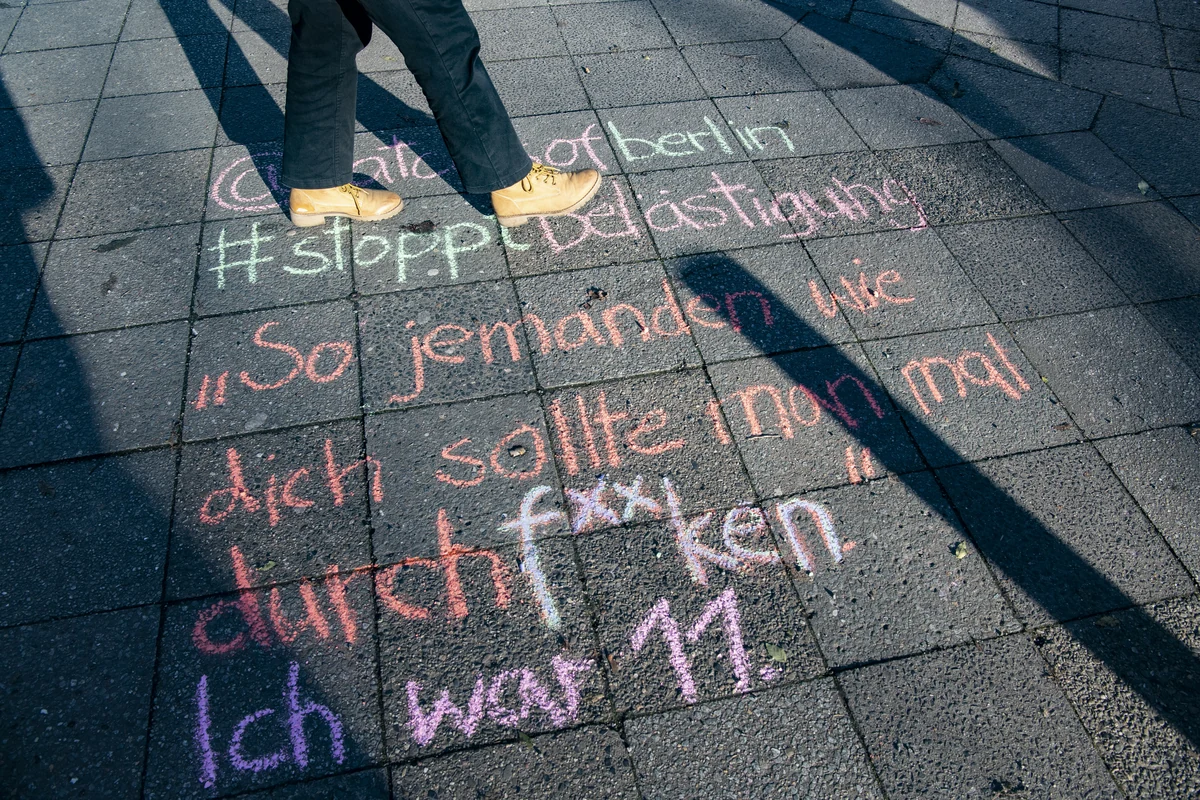 of berlin
#stoppt belästigung
„So jemanden wie
dich sollte man mal
durchfxxken"
Ich war 11.